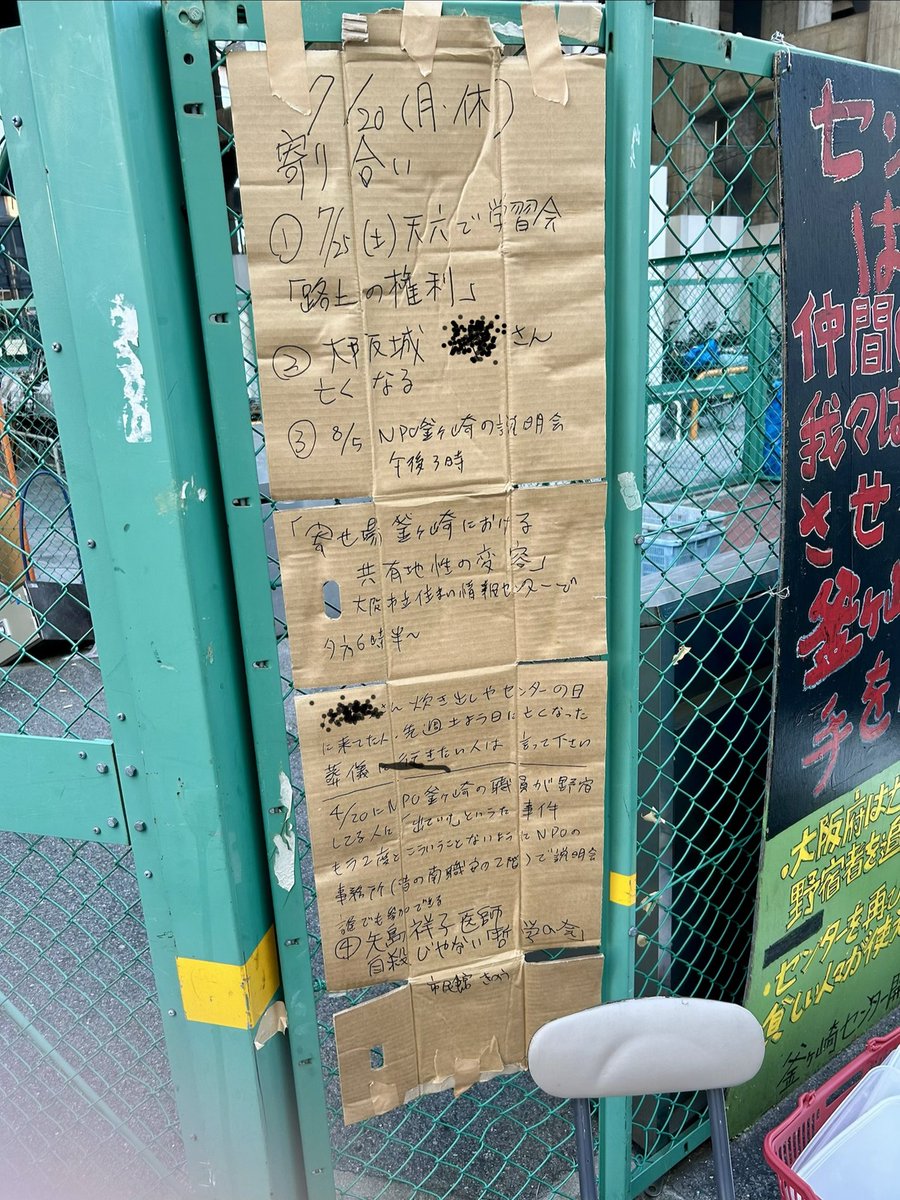 7/20 (月・休)
寄り合い
① 7/25 (土) 天六で学習会
「路上の権利」
② 大阪城 さん
亡くなる
③ 8/5 NPO釜ヶ崎の説明会
午後3時
「寄せ場 釜ヶ崎における
共有地性の変容」
大阪市立住まい情報センターで
夕方6時半〜
さん 炊き出しやセンターの日
に来てた人. 先週土よう日に亡くなった
葬儀 行きたい人は 言って下さい
4/20にNPO釜ヶ崎の職員が野宿
してる人に「出ていけ」といった事件
もう2度とこういうことないようにNPOの
事務所(昔の南職安の2階)で説明会
誰でも参加できる
④ 矢島祥子医師
自殺じゃない 学の会」
市民館
セン
は
仲間
我々は
させ
釜ヶ
手を
・大阪府は
野宿者を追
・センターを再び
貧しい人々が使え
釜ヶ崎センター開